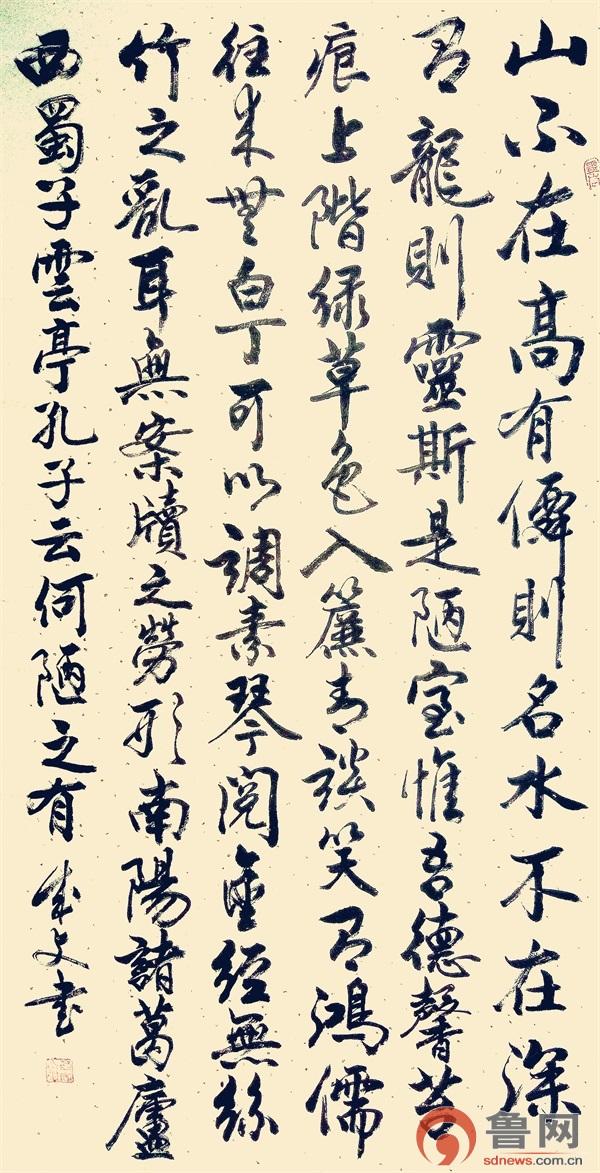 山不在髙有僊則名水不在深
有龍則靈斯是陋室惟吾德馨苔
痕上階緑草色入簾青談笑有鴻儒
往来無白丁可以調素琴閲金經無絲
竹之亂耳無案牘之勞形南陽諸葛廬
西蜀子雲亭孔子云何陋之有 成文书
鲁网
sdnews.com.cn